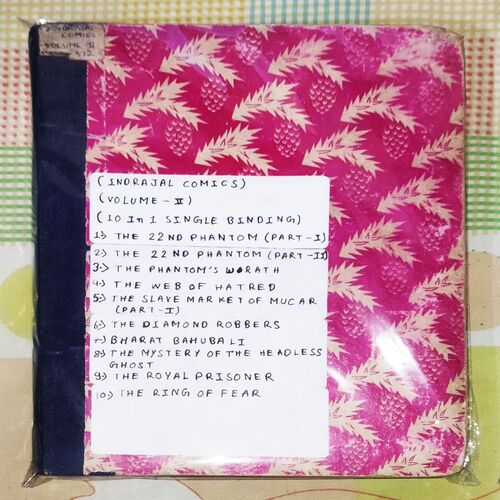 INDRAJAL
COMICS
VOLUME - II
(INDRAJAL COMICS)
(VOLUME - II)
(10 In 1 SINGLE BINDING)
1.) THE 22ND PHANTOM (PART-I)
2.) THE 22ND PHANTOM (PART-II)
3.) THE PHANTOM'S WORATH
4.) THE WEB OF HATRED
5.) THE SLAVE MARKET OF MUCAR
(PART-I)
6.) THE DIAMOND ROBBERS
7.) BHARAT BAHUBALI
8.) THE MYSTERY OF THE HEADLESS
GHOST
9.) THE ROYAL PRISONER
10.) THE RING OF FEAR